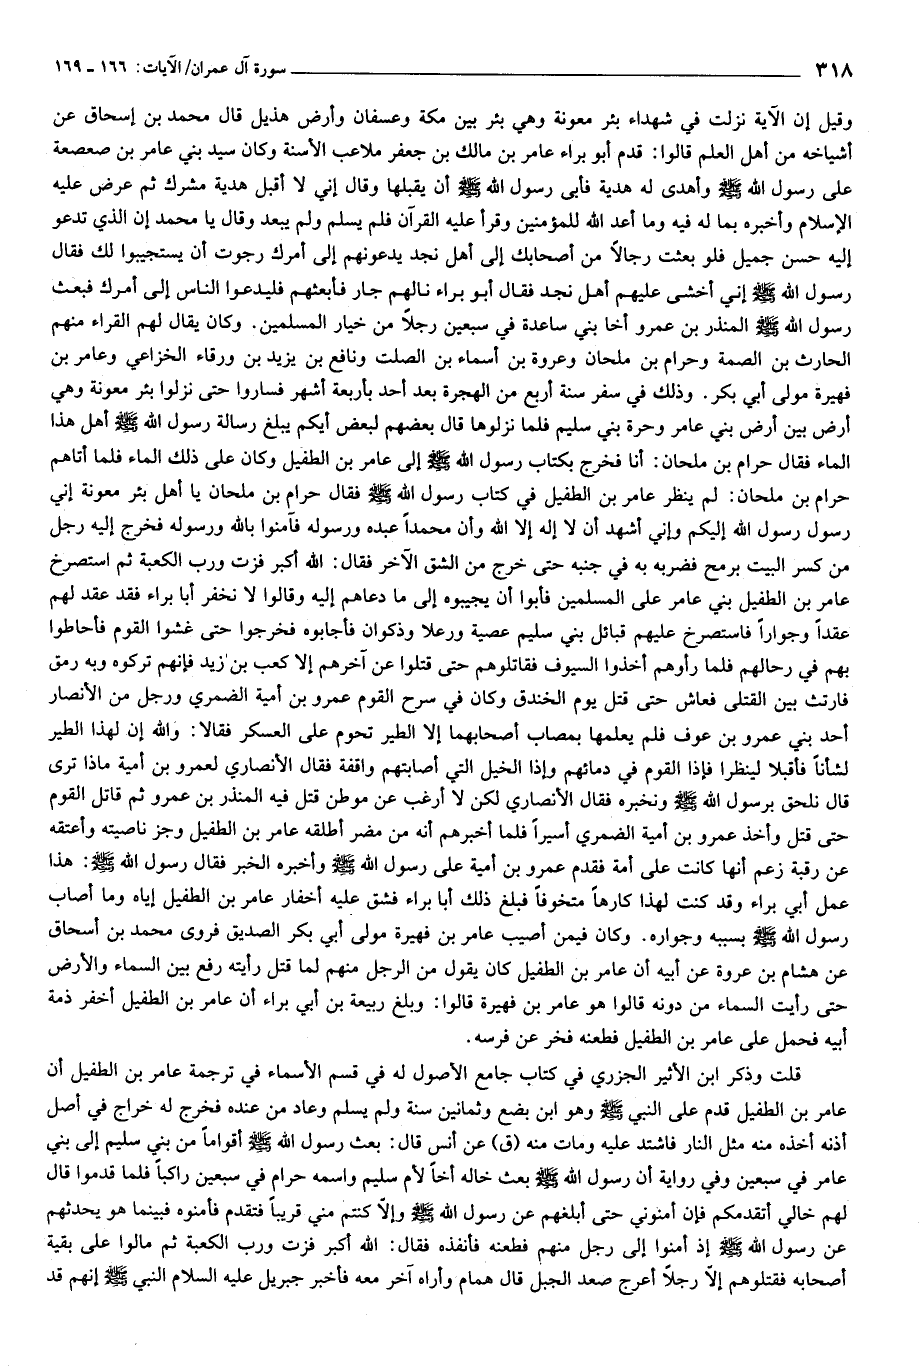 ٣١٨ سورة آل عمران/ الآيات: ١٦٦ ـ ١٦٩
وقيل إن الآية نزلت في شهداء بئر معونة وهي بئر بين مكة وعسفان وأرض هذيل قال محمد بن إسحاق عن
أشياخه من أهل العلم قالوا: قدم أبو براء عامر بن مالك بن جعفر ملاعب الأسنة وكان سيد بني عامر بن صعصعة
على رسول الله ﷺ وأهدى له هدية فأبى رسول الله ﷺ أن يقبلها وقال إني لا أقبل هدية مشرك ثم عرض عليه
الإسلام وأخبره بما له فيه وما أعد الله للمؤمنين وقرأ عليه القرآن فلم يسلم ولم يبعد وقال يا محمد إن الذي تدعو
إليه حسن جميل فلو بعثت رجالاً من أصحابك إلى أهل نجد يدعونهم إلى أمرك رجوت أن يستجيبوا لك فقال
رسول الله ﷺ إني أخشى عليهم أهل نجد فقال أبو براء نالهم جار فأبعثهم فليدعوا الناس إلى أمرك فبعث
رسول الله ﷺ المنذر بن عمرو أخا بني ساعدة في سبعين رجلاً من خيار المسلمين. وكان يقال لهم القراء منهم
الحارث بن الصمة وحرام بن ملحان وعروة بن أسماء بن الصلت ونافع بن يزيد بن ورقاء الخزاعي وعامر بن
فهيرة مولى أبي بكر. وذلك في سفر سنة أربع من الهجرة بعد أحد بأربعة أشهر فساروا حتى نزلوا بئر معونة وهي
أرض بين أرض بني عامر وحرة بني سليم فلما نزلوها قال بعضهم لبعض أيكم يبلغ رسالة رسول الله ﷺ أهل هذا
الماء فقال حرام بن ملحان: أنا فخرج بكتاب رسول الله ﷺ إلى عامر بن الطفيل وكان على ذلك الماء فلما أتاهم
حرام بن ملحان: لم ينظر عامر بن الطفيل في كتاب رسول الله ﷺ فقال حرام بن ملحان يا أهل بئر معونة إني
رسول رسول الله إليكم وإني أشهد أن لا إله إلا الله وأن محمداً عبده ورسوله فآمنوا بالله ورسوله فخرج إليه رجل
من كسر البيت برمح فضربه به في جنبه حتى خرج من الشق الآخر فقال: الله أكبر فزت ورب الكعبة ثم استصرخ
عامر بن الطفيل بني عامر على المسلمين فأبوا أن يجيبوه إلى ما دعاهم إليه وقالوا لا نخفر أبا براء فقد عقد لهم
عقداً وجواراً فاستصرخ عليهم قبائل بني سليم عصية ورعلا وذكوان فأجابوه فخرجوا حتى غشوا القوم فأحاطوا
بهم في رحالهم فلما رأوهم أخذوا السيوف فقاتلوهم حتى قتلوا عن آخرهم إلا كعب بن زيد فإنهم تركوه وبه رمق
فارتث بين القتلى فعاش حتى قتل يوم الخندق وكان في سرح القوم عمرو بن أمية الضمري ورجل من الأنصار
أحد بني عمرو بن عوف فلم يعلمها بمصاب أصحابهما إلا الطير تحوم على العسكر فقالا: والله إن لهذا الطير
لشأناً فأقبلا لينظرا فإذا القوم في دمائهم وإذا الخيل التي أصابتهم واقفة فقال الأنصاري لعمرو بن أمية ماذا ترى
قال نلحق برسول الله ﷺ ونخبره فقال الأنصاري لكن لا أرغب عن موطن قتل فيه المنذر بن عمرو ثم قاتل القوم
حتى قتل وأخذ عمرو بن أمية الضمري أسيراً فلما أخبرهم أنه من مضر أطلقه عامر بن الطفيل وجز ناصيته وأعتقه
عن رقبة زعم أنها كانت على أمة فقدم عمرو بن أمية على رسول الله ﷺ وأخبره الخبر فقال رسول الله ﷺ: هذا
عمل أبي براء وقد كنت لهذا كارهاً متخوفاً فبلغ ذلك أبا براء فشق عليه أخفار عامر بن الطفيل إياه وما أصاب
رسول الله ﷺ بسببه وجواره. وكان فيمن أصيب عامر بن فهيرة مولى أبي بكر الصديق فروى محمد بن أسحاق
عن هشام بن عروة عن أبيه أن عامر بن الطفيل كان يقول من الرجل منهم لما قتل رأيته رفع بين السماء والأرض
حتى رأيت السماء من دونه قالوا هو عامر بن فهيرة قالوا: وبلغ ربيعة بن أبي براء أن عامر بن الطفيل أخفر ذمة
أبيه فحمل على عامر بن الطفيل فطعنه فخر عن فرسه.
قلت وذكر ابن الأثير الجزري في كتاب جامع الأصول له في قسم الأسماء في ترجمة عامر بن الطفيل أن
عامر بن الطفيل قدم على النبي ﷺ وهو ابن بضع وثمانين سنة ولم يسلم وعاد من عنده فخرج له خراج في أصل
أذنه أخذه منه مثل النار فاشتد عليه ومات منه (ق) عن أنس قال: بعث رسول الله ﷺ أقواماً من بني سليم إلى بني
عامر في سبعين وفي رواية أن رسول الله ﷺ بعث خاله أخاً لأم سليم واسمه حرام في سبعين راكباً فلما قدموا قال
لهم خالي أتقدمكم فإن أمنوني حتى أبلغهم عن رسول الله ﷺ وإلاّ كنتم مني قريباً فتقدم فأمنوه فبينما هو يحدثهم
عن رسول الله ﷺ إذ أمنوا إلى رجل منهم فطعنه فأنفذه فقال: الله أكبر فزت ورب الكعبة ثم مالوا على بقية
أصحابه فقتلوهم إلاّ رجلاً أعرج صعد الجبل قال همام وأراه آخر معه فأخبر جبريل عليه السلام النبي ﷺ إنهم قد